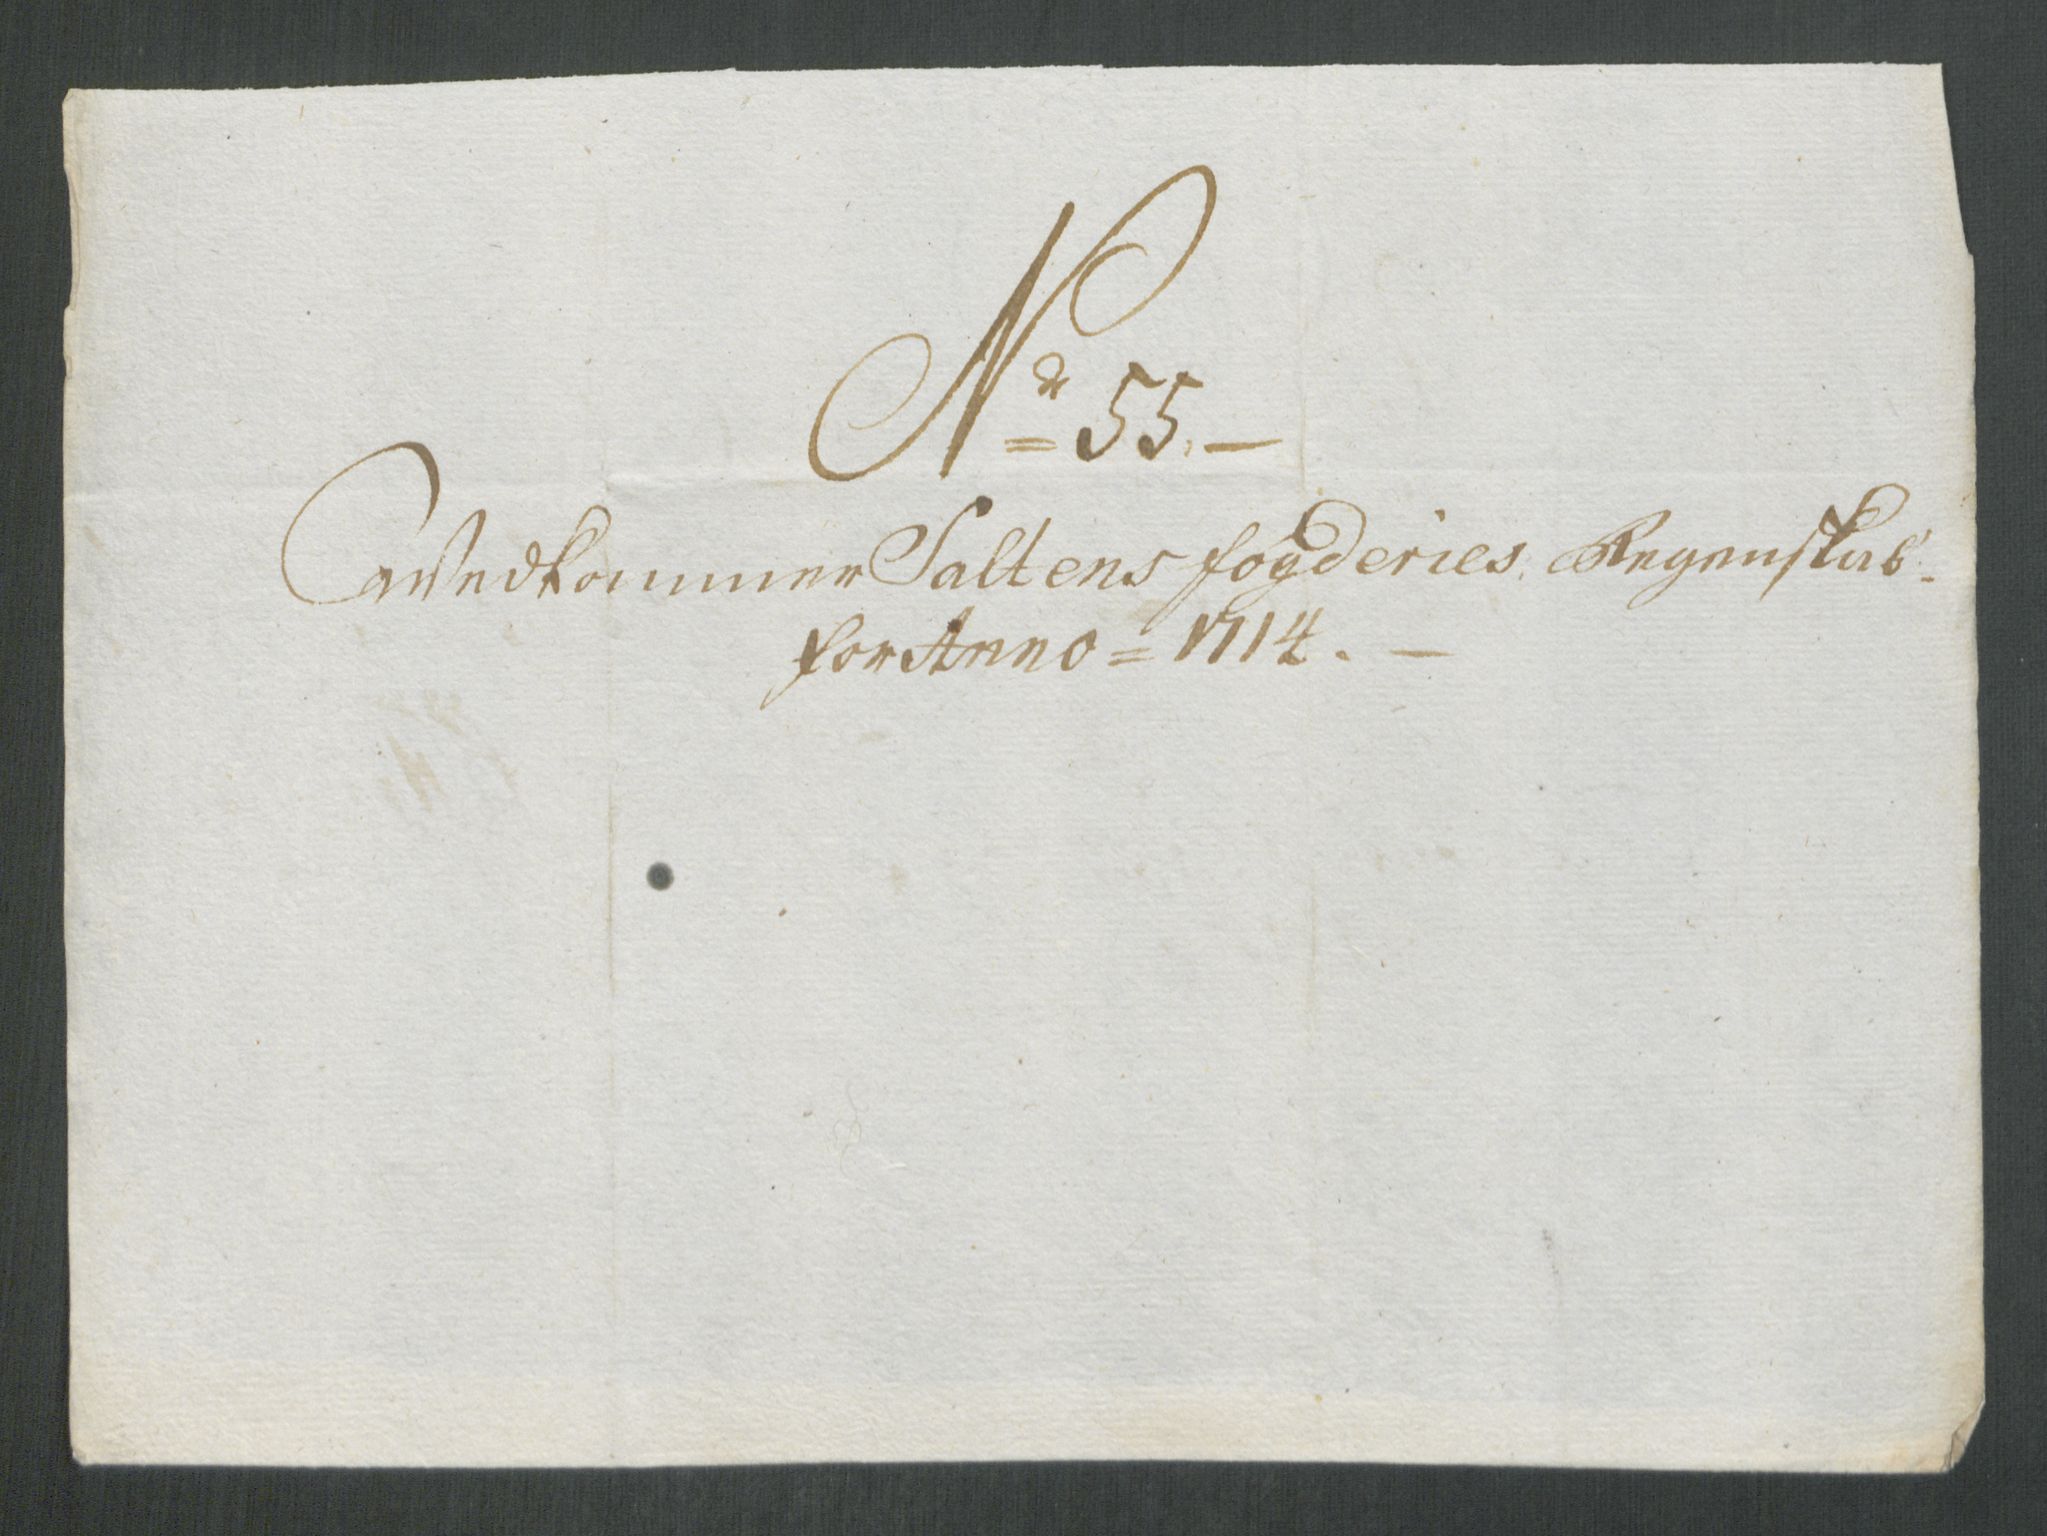 Nr = 55. —
Vedkommer Saltens fogderies Regenskab.
for Anno = 1714. —